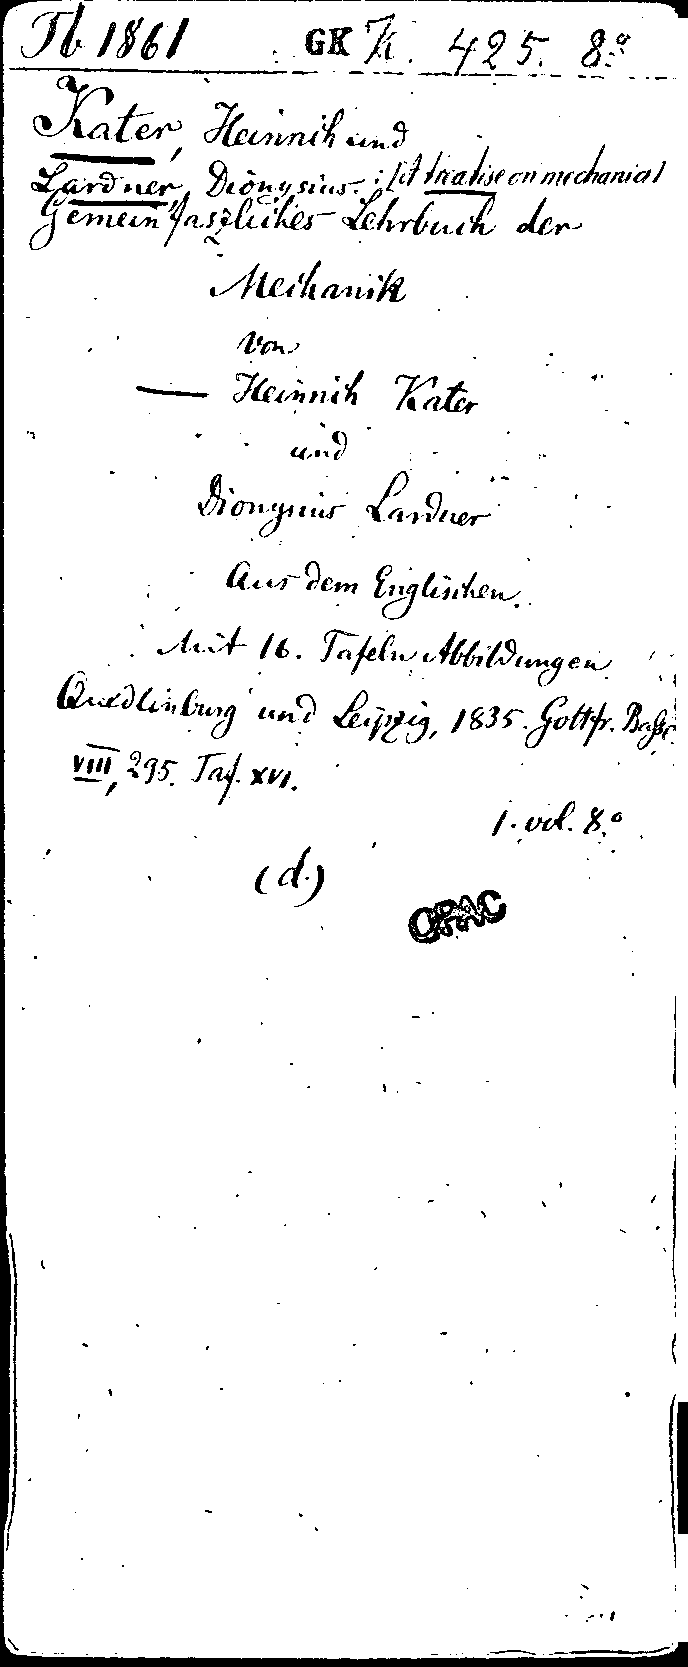 Tb 1861 GK K. 425. 8.º
Kater, Heinrich und
Lardner, Dionysius. : [A treatise on mechanics]
Gemeinfaszliches Lehrbuch der
Mechanik
von
— Heinrich Kater
und
Dionysius Lardner
Aus dem Englischen.
Mit 16. Tafeln Abbildungen
Quedlinburg und Leipzig, 1835. Gottfr. Basse.
VIII, 295. Taf. XVI.
1. vol. 8.º
(d.)
OPAC